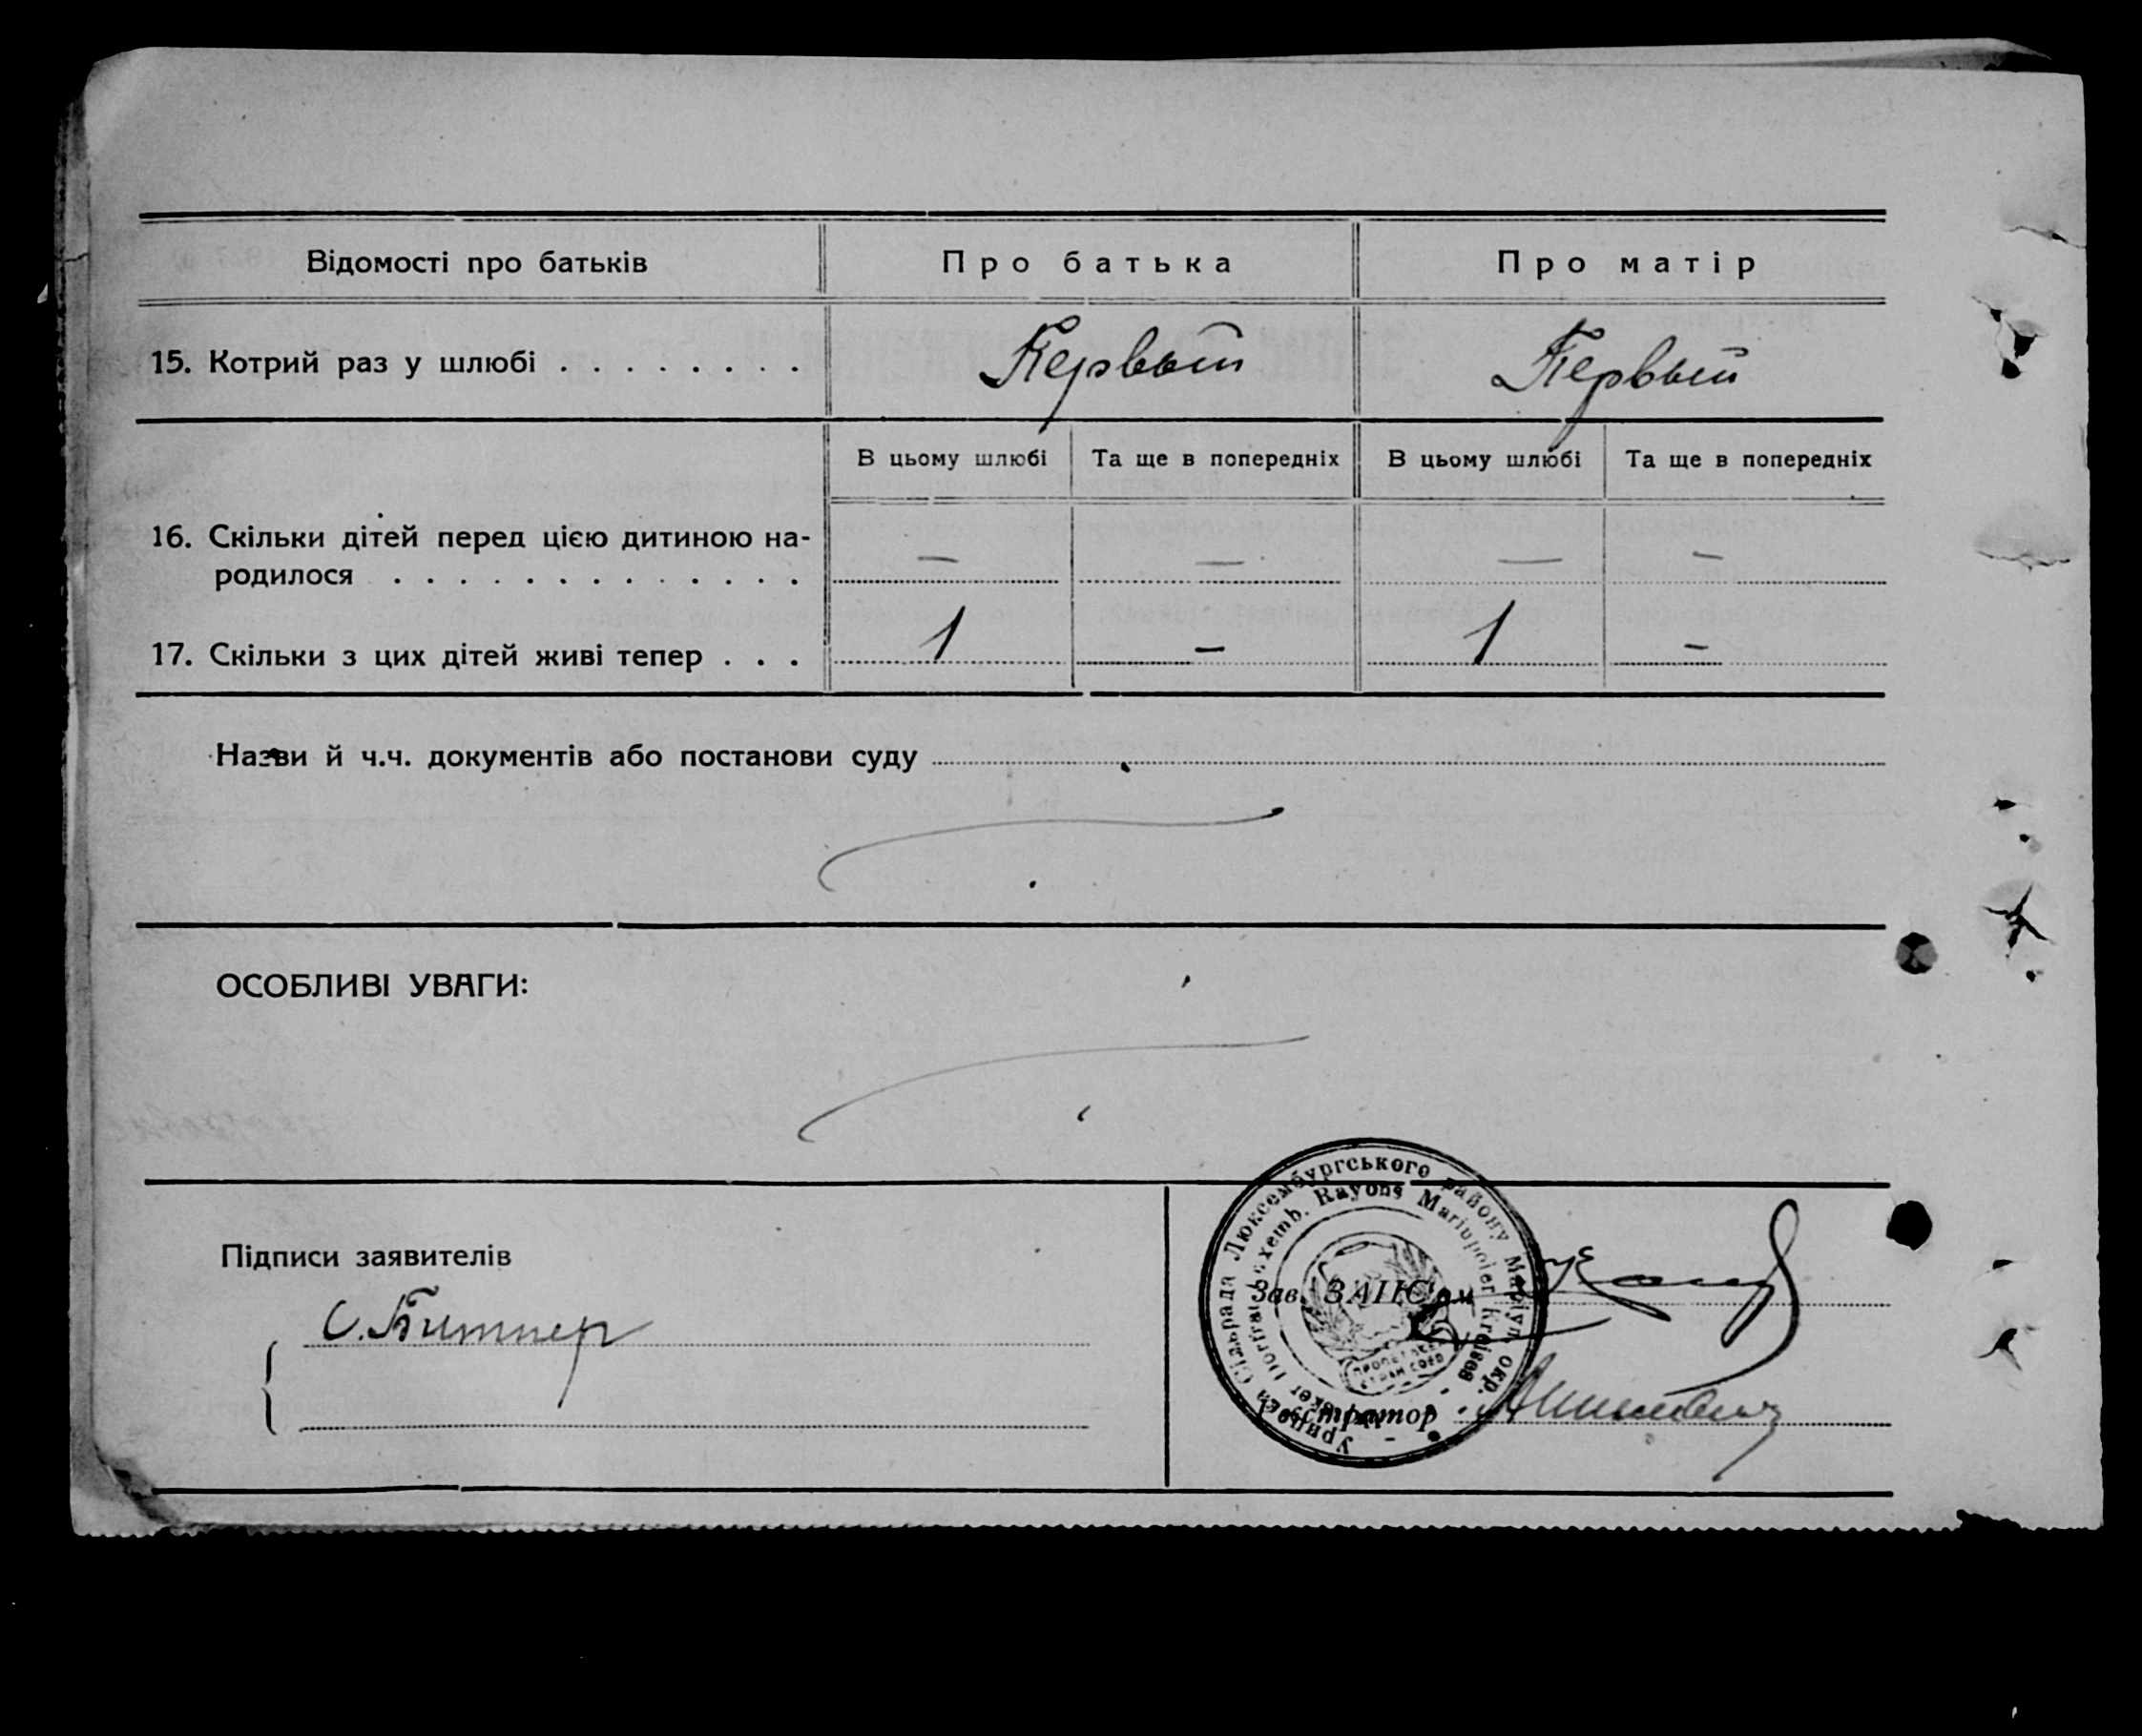 Відомості про батьків | Про батька | Про матір
15. Котрий раз у шлюбі . . . . . . . . Первый Первый
В цьому шлюбі | Та ще в попередніх | В цьому шлюбі | Та ще в попередніх
16. Скільки дітей перед цією дитиною на-
родилося . . . . . . . . . . . . . — — — —
17. Скільки з цих дітей живі тепер . . . 1 – 1 –
Назви й ч.ч. документів або постанови суду
ОСОБЛИВІ УВАГИ:
Люксембургського району Маріуп. окр.
Rayons Mariupoler Kreises
Підписи заявителів
Зав. ЗАГС'ом
С. Битнер